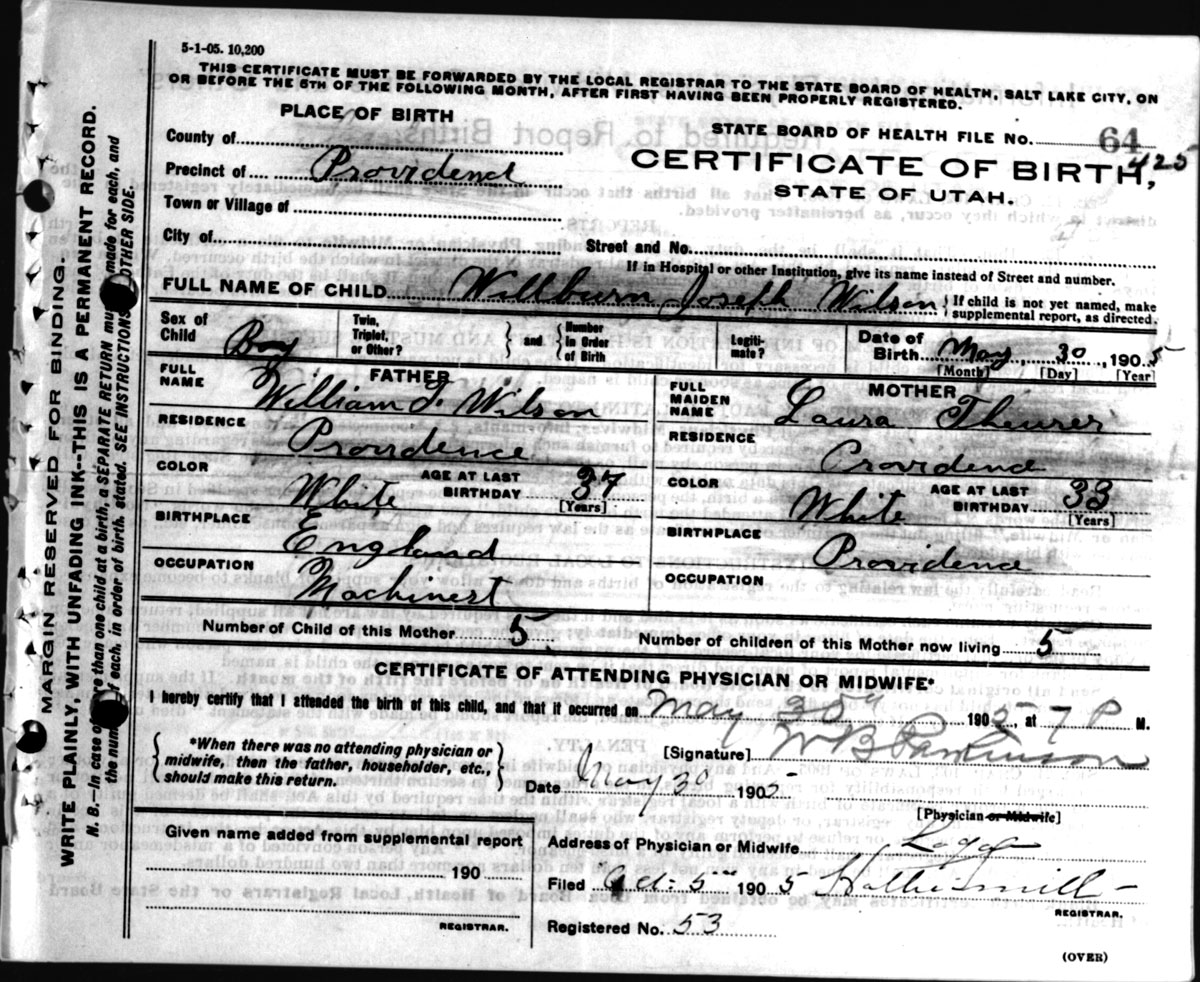 5-1-05. 10,200
THIS CERTIFICATE MUST BE FORWARDED BY THE LOCAL REGISTRAR TO THE STATE BOARD OF HEALTH, SALT LAKE CITY, ON
OR BEFORE THE 5TH OF THE FOLLOWING MONTH, AFTER FIRST HAVING BEEN PROPERLY REGISTERED.
MARGIN RESERVED FOR BINDING.
WRITE PLAINLY, WITH UNFADING INK--THIS IS A PERMANENT RECORD.
N. B.--In case of more than one child at a birth, a SEPARATE RETURN must be made for each, and
the number of each, in order of birth, stated. SEE INSTRUCTIONS OTHER SIDE.
PLACE OF BIRTH
County of
Precinct of Providence
Town or Village of
City of
STATE BOARD OF HEALTH FILE No. 64
425
CERTIFICATE OF BIRTH,
STATE OF UTAH.
Street and No.
If in Hospital or other Institution, give its name instead of Street and number.
FULL NAME OF CHILD Willburn Joseph Wilson } If child is not yet named, make
supplemental report, as directed.
Sex of Child Boy
Twin, Triplet, or Other?
} and {
Number in Order of Birth
Legiti-mate?
Date of Birth May 30, 1905
[Month] [Day] [Year]
FATHER
FULL NAME William J. Wilson
RESIDENCE Providence
COLOR White
AGE AT LAST BIRTHDAY 37
[Years]
BIRTHPLACE England
OCCUPATION Machinest
MOTHER
FULL MAIDEN NAME Laura Theurer
RESIDENCE Providence
COLOR White
AGE AT LAST BIRTHDAY 33
[Years]
BIRTHPLACE Providence
OCCUPATION
Number of Child of this Mother 5
Number of children of this Mother now living 5
CERTIFICATE OF ATTENDING PHYSICIAN OR MIDWIFE*
I hereby certify that I attended the birth of this child, and that it occurred on May 30 1905, at 7 P M.
{ *When there was no attending physician or
midwife, then the father, householder, etc.,
should make this return. }
[Signature] W B Parkinson
Date May 30 1905
[Physician or Midwife]
Given name added from supplemental report
190
REGISTRAR.
Address of Physician or Midwife Logan
Filed 5 1905
REGISTRAR.
Registered No. 53
(OVER)